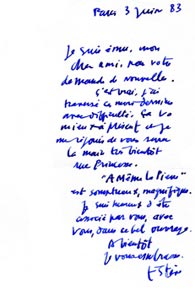 Paris 3 juin 83
Je suis ému, mon
cher ami, par votre
demande de nouvelles.
C'est vrai, j'ai
traversé ce mois dernier
avec difficulté. Ça va
mieux à présent et je
me réjouis de vous serrer
la main très bientôt
rue Princesse.
"A même la pierre"
est somptueux, magnifique.
Je suis heureux d'être
associé par vous, avec
vous, dans ce bel ouvrage.
A bientôt
Je vous embrasse.